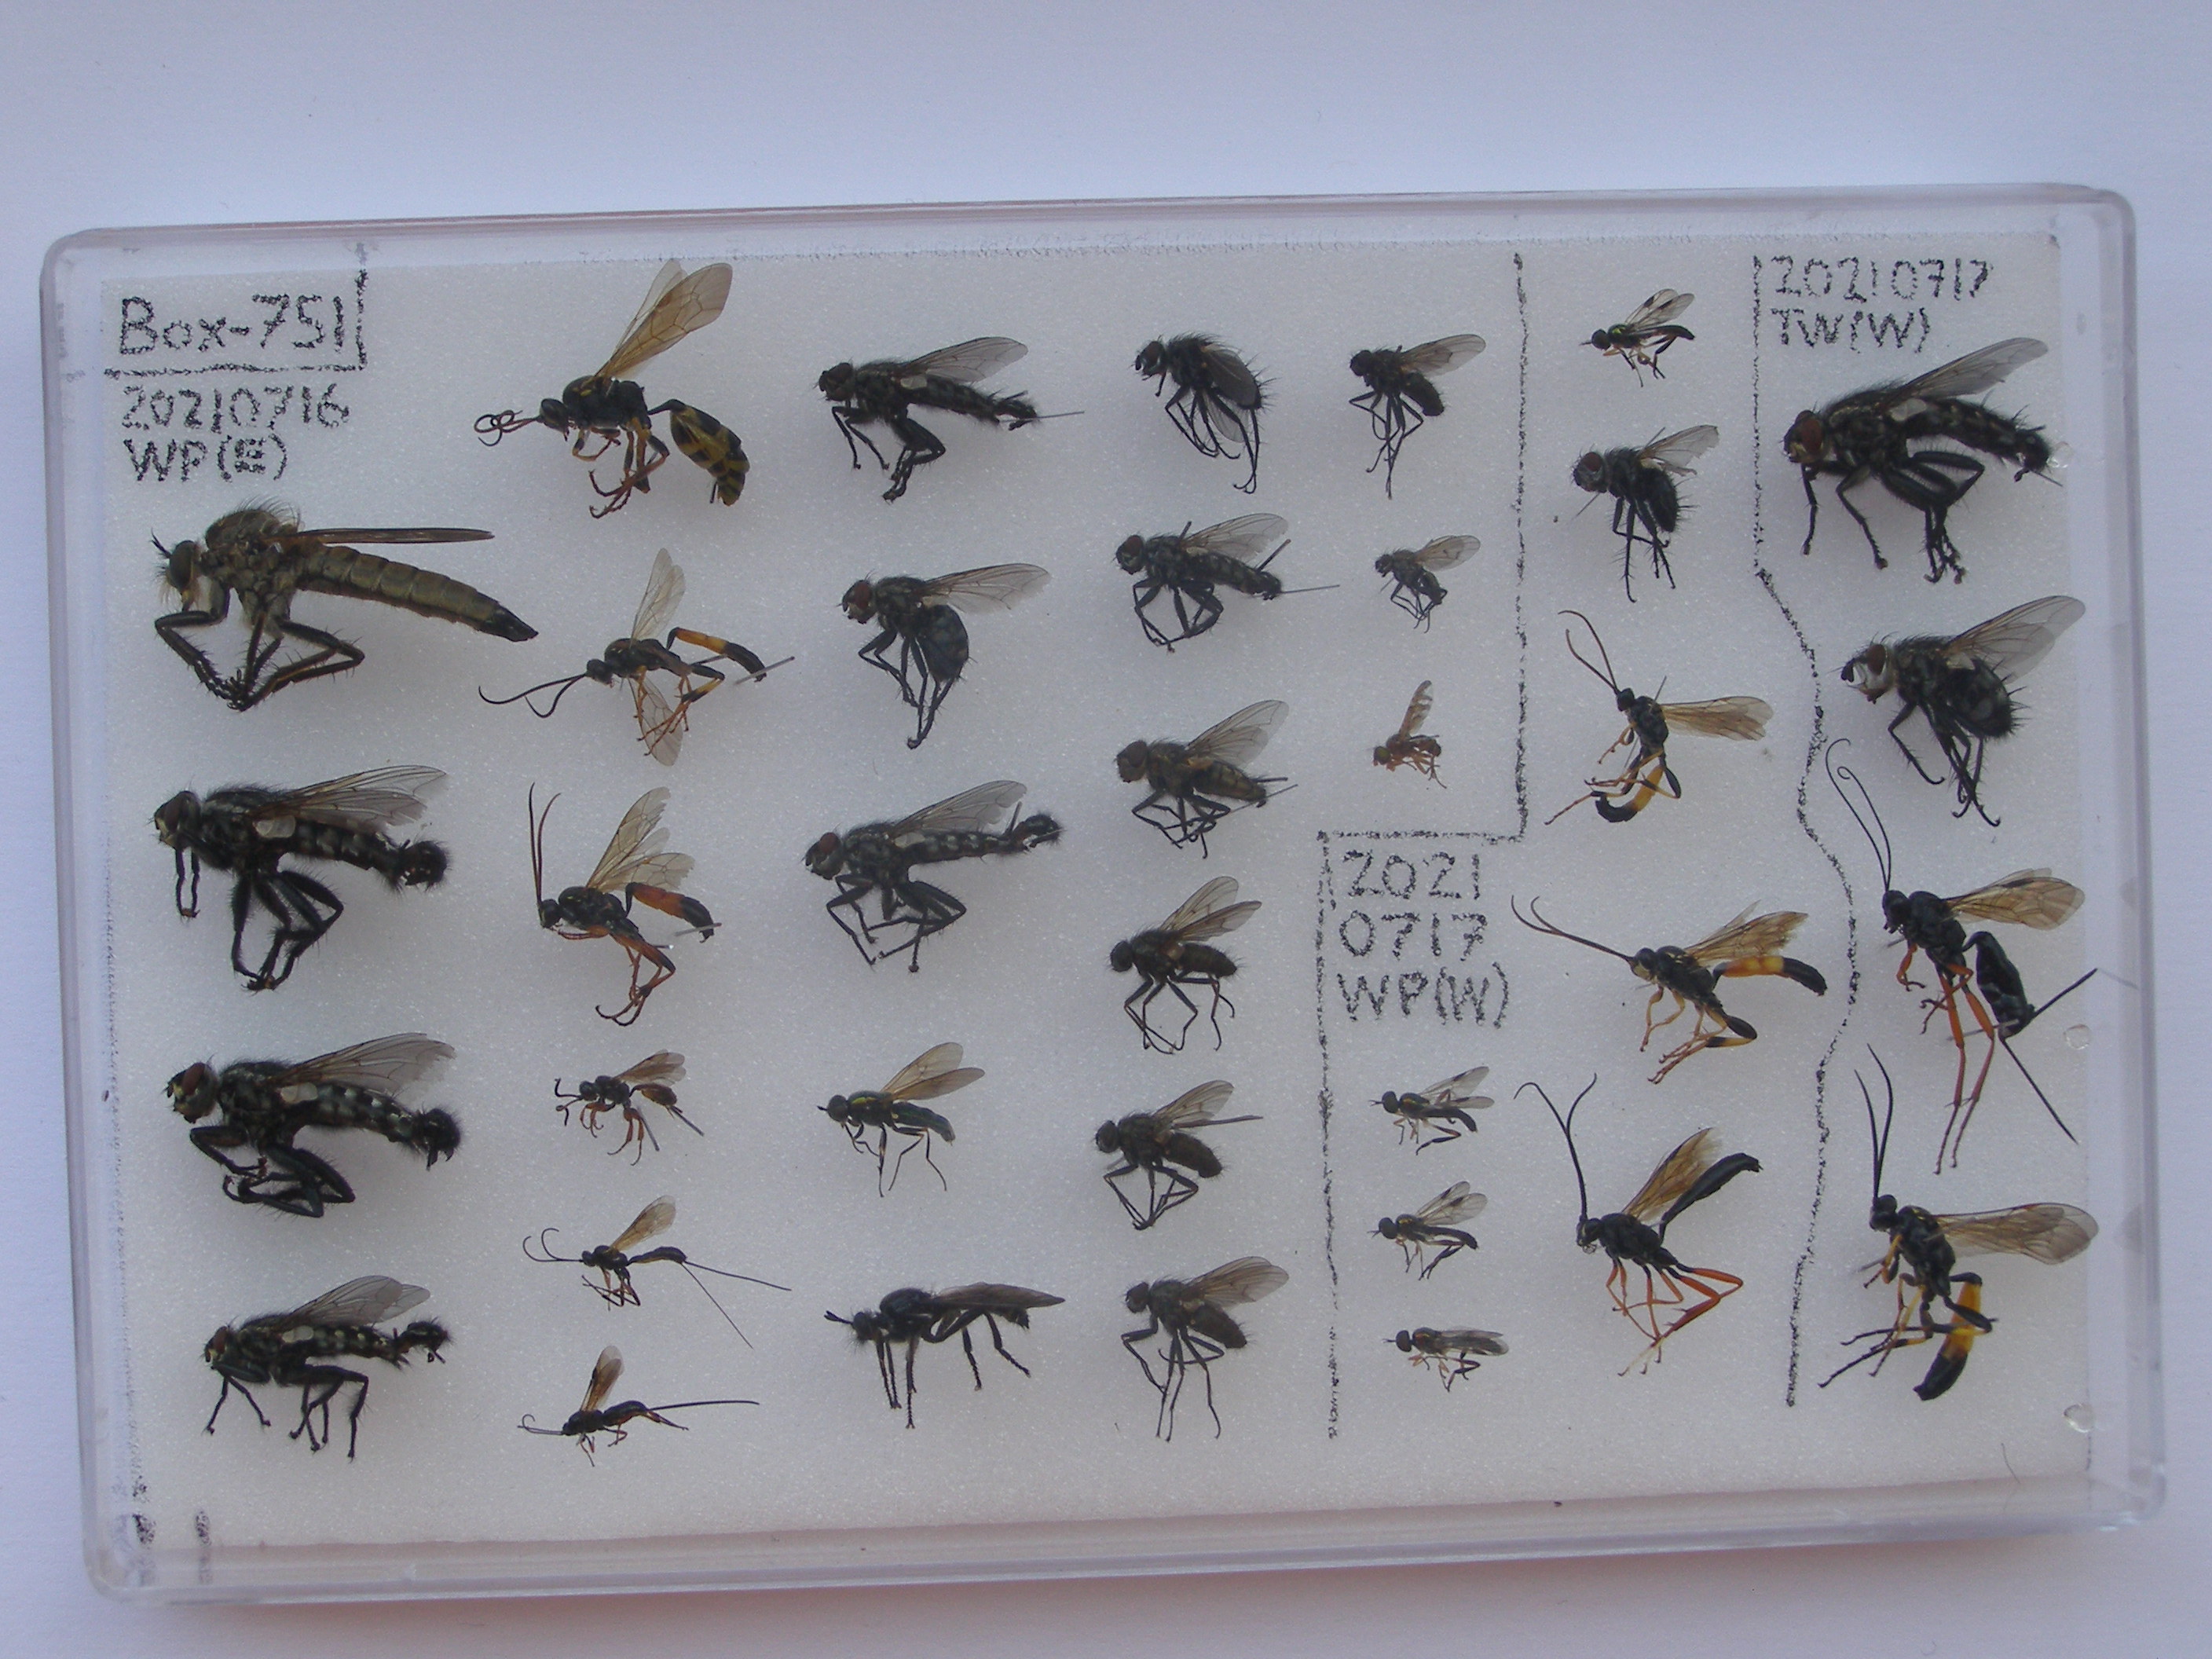 Box-751
20210716
WP(E)
2021
0717
WP(W)
20210717
TW(W)